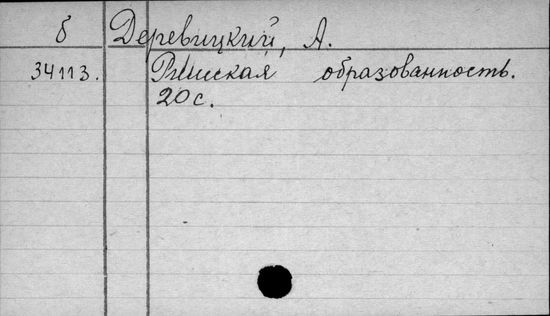 б Деревицкий, А.
34113. Римская образованность.
20 с.